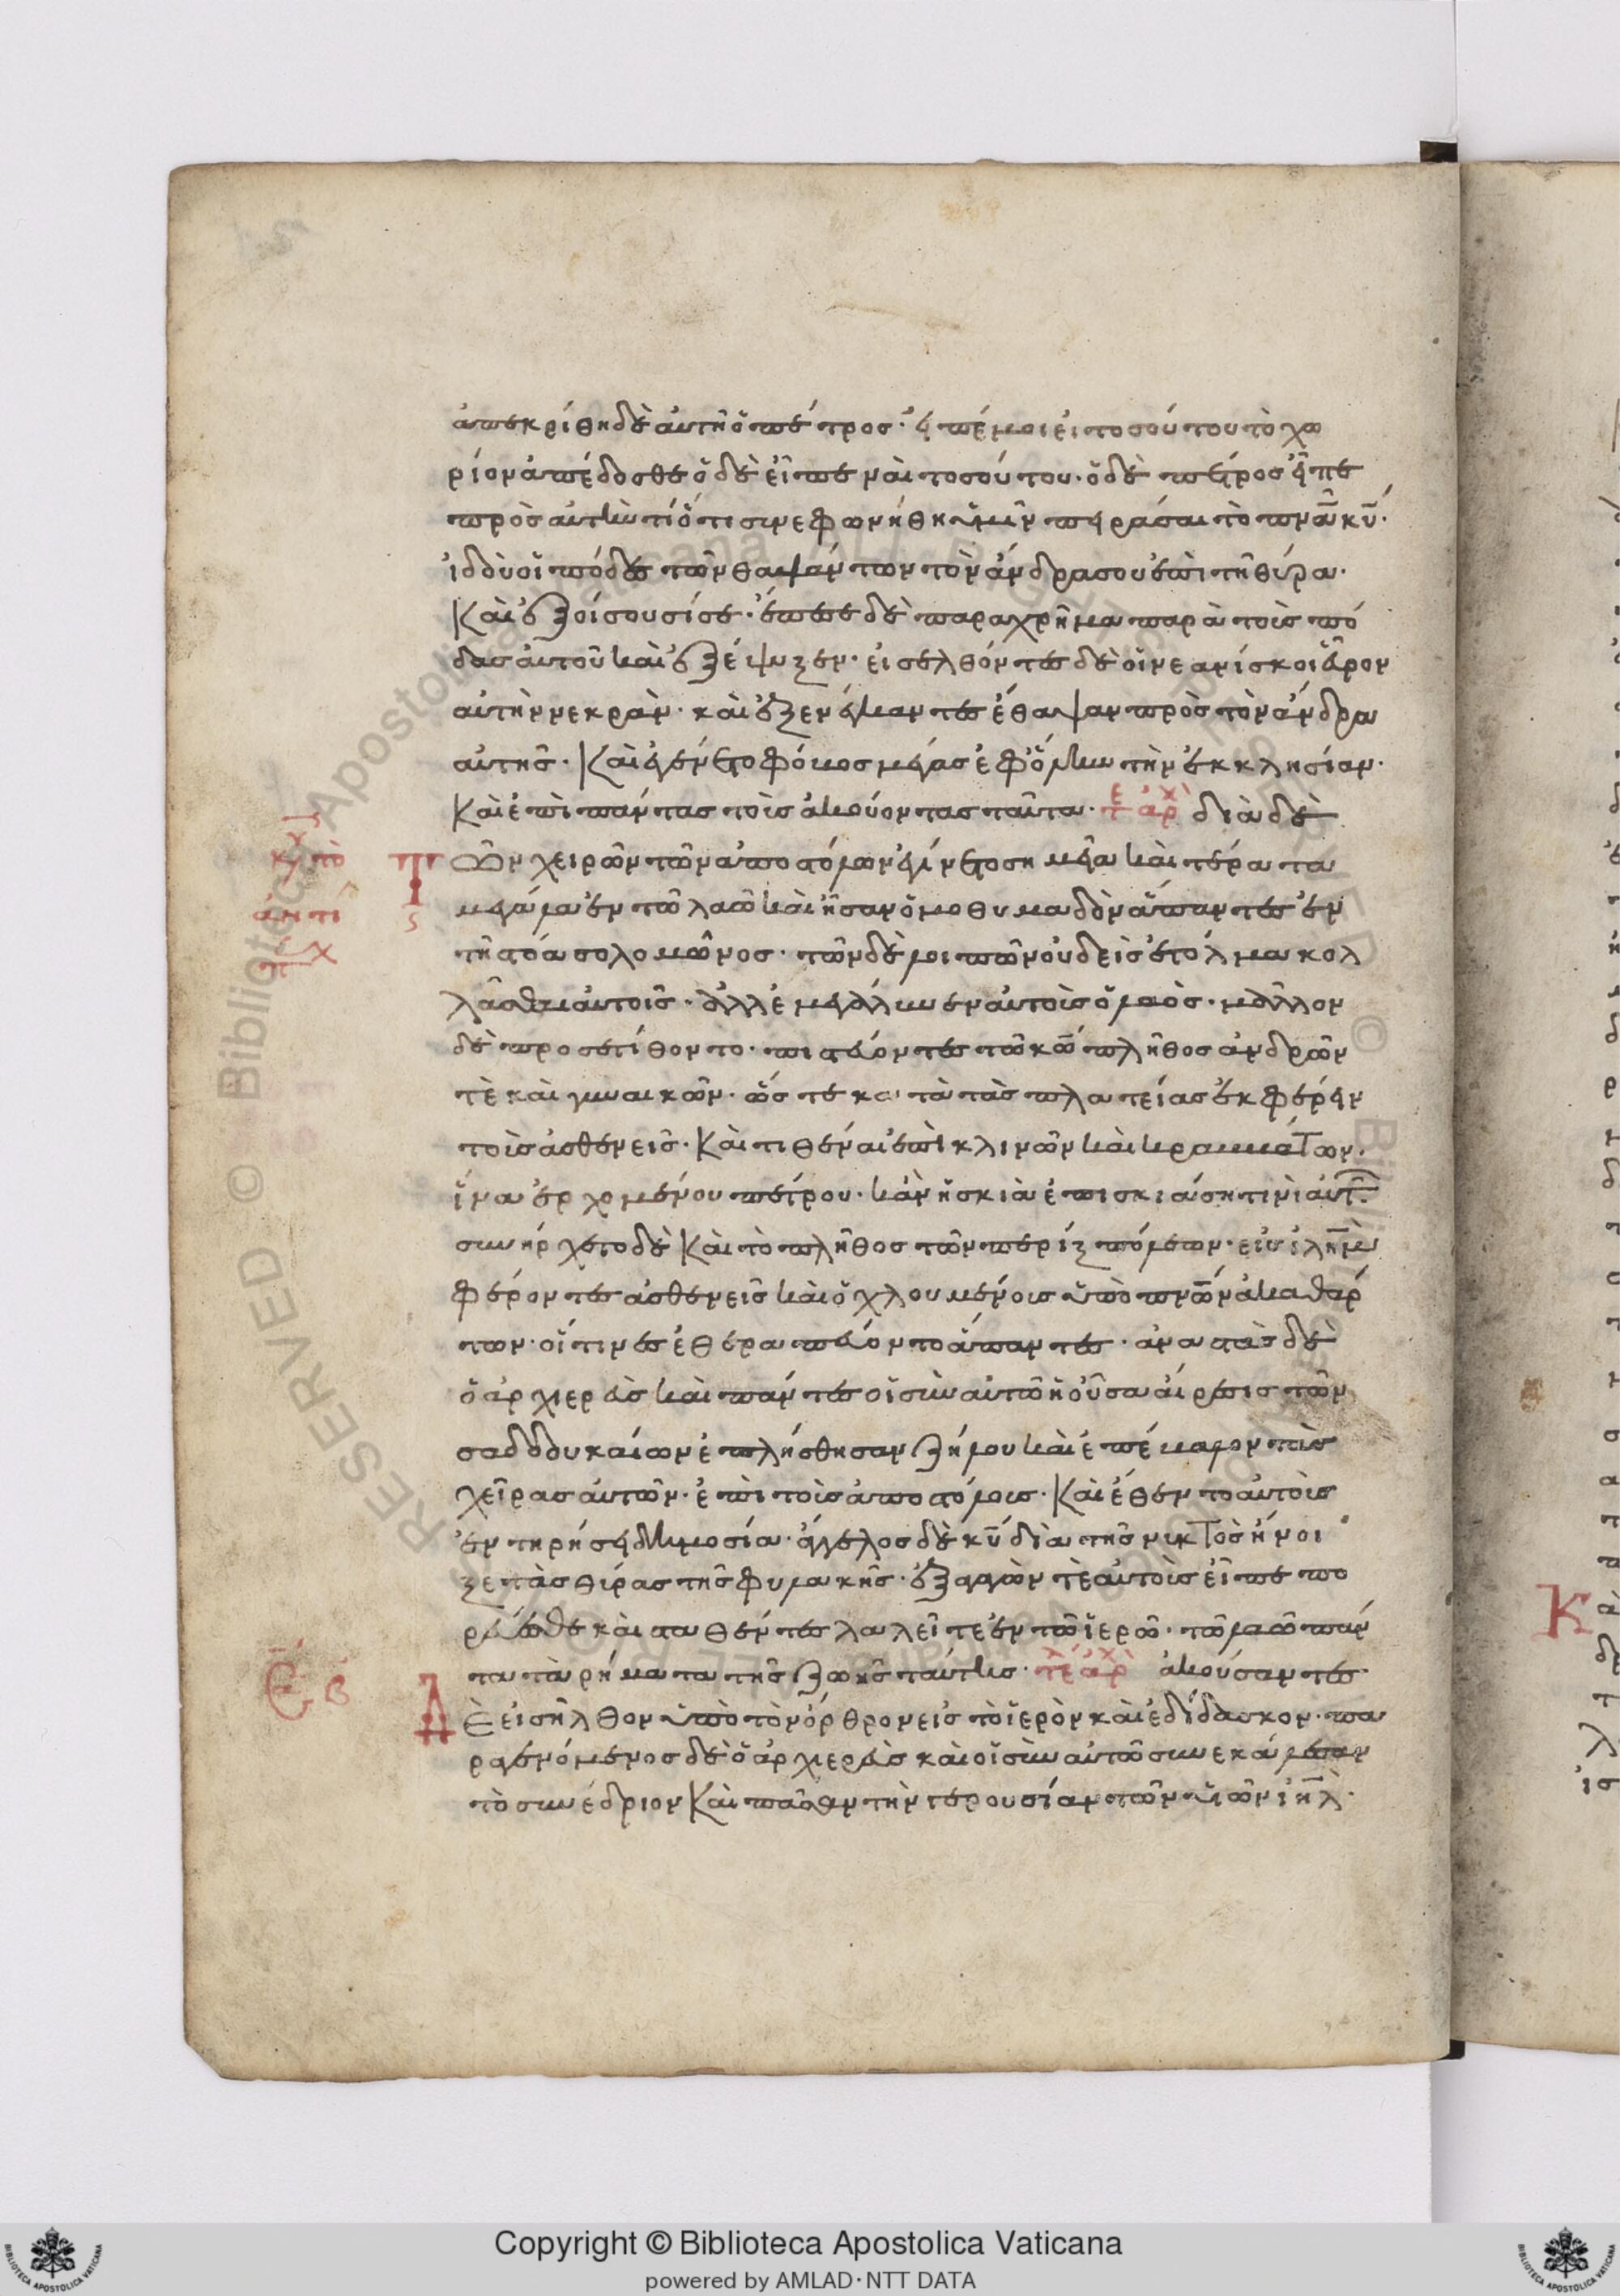 ἀπεκρίθη δὲ αὐτῆ ὁ πέτρος· εἰπέ μοι εἰ τοσούτου τὸ χω
ρίον ἀπέδοσθε ὁ δὲ εἶπε ναὶ τοσούτου· ὁ δὲ πέτρος εἶπε
πρὸς αὐτὴν τί ὅτι συνεφωνήθη ὑμῖν πειράσαι τὸ πνα κυ·
ἰδοὺ οἱ πόδες τῶν θαψάντων τὸν ἄνδρα σου ἐπὶ τῆ θύρα·
Καὶ ἐξοίσουσί σε· ἔπεσε δὲ παραχρῆμα παρὰ τοὺς πό
δας αὐτοῦ καὶ ἐξέψυξεν· εἰσελθόντες δὲ οἱ νεανίσκοι εὗρον
αὐτὴν νεκρὰν· καὶ ἐξενέγκαντες ἔθαψαν πρὸς τὸν ἄνδρα
αὐτῆς· Καὶ ἐγένετο φόβος μέγας ἐφ ὅλην τὴν ἐκκλησίαν·
Καὶ ἐπὶ πάντας τοὺς ἀκούοντας ταῦτα· τε αρχ διὰ δὲ
Τῶν χειρῶν τῶν ἀποστόλων ἐγίνετο σημεῖα καὶ τέρατα
μεγάλα ἐν τῶ λαῶ καὶ ἦσαν ὁμοθυμαδὸν ἅπαντες ἐν
τῆ στοᾶ σολομῶνος· τῶν δὲ λοιπῶν οὐδεὶς ἐτόλμα κολ
λᾶσθαι αὐτοῖς· ἀλλ ἐμεγάλυνεν αὐτοὺς ὁ λαὸς· μᾶλλον
δὲ προσετίθοντο· πιστεύοντες τῶ κω πλῆθος ἀνδρῶν
τὲ καὶ γυναικῶν· ὥστε κατὰ τὰς πλατείας ἐκφέρειν
τοὺς ἀσθενεῖς· Καὶ τιθέναι ἐπὶ κλινῶν καὶ κραββάτων·
ἵνα ἐρχομένου πέτρου· κἂν ἡ σκιὰ ἐπισκιάση τινὶ αὐτ·
συνήρχετο δὲ Καὶ τὸ πλῆθος τῶν πέριξ πόλεων· εἰς ιλημ
φέροντες ἀσθενεῖς καὶ ὀχλουμένους ὑπὸ πνων ἀκαθάρ
των· οἵτινες ἐθεραπεύοντο ἅπαντες· ἀναστὰς δὲ
ὁ ἀρχιερεὺς καὶ πάντες οἱ σὺν αὐτῶ ἡ οὖσα αἵρεσις τῶν
σαδδουκαίων ἐπλήσθησαν ζήλου καὶ ἐπέβαλον τὰς
χεῖρας αὐτῶν· ἐπὶ τοὺς ἀποστόλους· Καὶ ἔθεντο αὐτοὺς
ἐν τηρήσει δημοσία· ἄγγελος δὲ κυ διὰ τῆς νυκτὸς ἤνοι
ξε τὰς θύρας τῆς φυλακῆς· ἐξαγαγὼν τὲ αὐτοὺς εἶπε πο
ρεύεσθε καὶ σταθέντες λαλεῖτε ἐν τῶ ἱερῶ· τῶ λαῶ πάν
τα τὰ ρήματα τῆς ζωῆς ταύτης· τε αρχ ἀκούσαντες
ΔΕ εἰσῆλθον ὑπὸ τὸν ὄρθρον εἰς τὸ ἱερὸν καὶ ἐδίδασκον· πα
ραγενόμενος δὲ ὁ ἀρχιερεὺς καὶ οἱ σὺν αὐτῶ συνεκάλεσαν
τὸ συνέδριον Καὶ πᾶσαν τὴν γερουσίαν τῶν υἱῶν ιηλ·
Copyright © Biblioteca Apostolica Vaticana
powered by AMLAD·NTT DATA